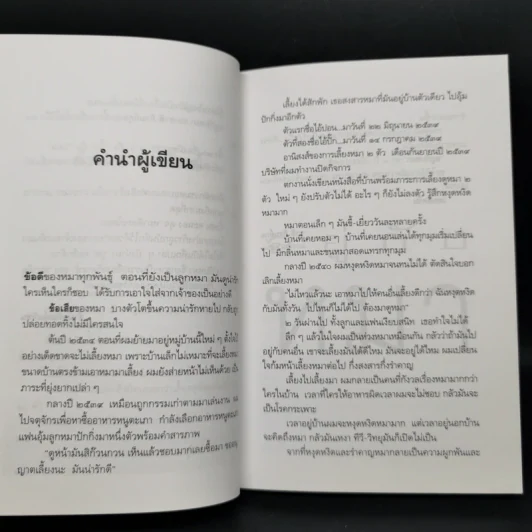 คำนำผู้เขียน
ข้อดีของหมาทุกพันธุ์ ตอนที่ยังเป็นลูกหมา มันดูน่ารัก
ใครเห็นใครก็ชอบ ได้รับการเอาใจใส่จากเจ้าของเป็นอย่างดี
ข้อเสียของหมา บางตัวโตขึ้นความน่ารักหายไป กลับถูก
ปล่อยทอดทิ้งไม่มีใครสนใจ
ต้นปี ๒๕๓๘ ตอนที่ผมย้ายมาอยู่หมู่บ้านนี้ใหม่ ๆ ตั้งใจไว้
อย่างเด็ดขาดจะไม่เลี้ยงหมา เพราะบ้านเล็กไม่เหมาะที่จะเลี้ยง
ขนาดบ้านตรงข้ามเอาหมามาเลี้ยง ผมยังส่ายหน้าไม่เห็นด้วย เป็น
ภาระที่ยุ่งยากเปล่า ๆ
กลางปี ๒๕๓๙ เหมือนถูกกรรมเก่าตามมาเล่นงาน
ไปจตุจักรเพื่อหาซื้ออาหารหนูตะเภา กำลังเลือกอาหารหนู
แฟนอุ้มลูกหมาปักกิ่งมาหนึ่งตัวพร้อมคำสารภาพ
"ดูหน้ามันสิก๊วนกวน เห็นแล้วชอบมากเลยซื้อมา
ญาตเลี้ยงนะ มันน่ารักดี"
เลี้ยงได้สักพัก เธอสงสารหมาที่มันอยู่บ้านตัวเดียว ไปอุ้ม
ปักกิ่งมาอีกตัว
ตัวแรกชื่อไอ้ปอน...มาวันที่ ๒๒ มิถุนายน ๒๕๓๙
ตัวที่สองชื่อไอ้ปิ๊ก...มาวันที่ ๑๔ กรกฎาคม ๒๕๓๙
อานิสงส์ของการเลี้ยงหมา ๒ ตัว เดือนกันยายนปี ๒๕๓๙
บริษัทที่ผมทำงานปิดกิจการ
ตกงานนั่งเขียนหนังสือที่บ้านพร้อมภาระการเลี้ยงดูหมา ๒
ตัว ใหม่ ๆ ยังปรับตัวไม่ได้ อะไร ๆ ก็ยังไม่ลงตัว รู้สึกหงุดหงิด
หมามาก
หมาตอนเล็ก ๆ มันขี้-เยี่ยววันละหลายครั้ง
บ้านที่เคยหอม ๆ บ้านที่เคยนอนเล่นได้ทุกมุมเริ่มเปลี่ยน
ไป มีกลิ่นหมาและขนหมาสอดแทรกทุกมุม
กลางปี ๒๕๔๐ ผมหงุดหงิดหมาจนทนไม่ได้ ตัดสินใจบอก
เลิกเลี้ยงหมา
"ไม่ไหวแล้วนะ เอาหมาไปให้คนอื่นเลี้ยงดีกว่า ฉันหงุดหงิด
กับมันทั้งวัน ไปไหนก็ไม่ได้ไป ต้องมาดูหมา"
๒ วันผ่านไป ทั้งลูกและแฟนเงียบสนิท เธอทำใจไม่ได้
ลึก ๆ แล้วในใจผมเป็นห่วงหมาเหมือนกัน กลัวว่าถ้ามันไป
อยู่กับคนอื่น เขาจะเลี้ยงมันได้ดีไหม มันจะอยู่ได้ไหม ผมเปลี่ยน
ใจก้มหน้าเลี้ยงหมาต่อไป กึ่งสงสารกึ่งรำคาญ
เลี้ยงไปเลี้ยงมา ผมกลายเป็นคนที่กังวลเรื่องหมามากกว่า
ใครในบ้าน เวลาที่ใครให้อาหารผิดเวลาผมจะไม่ชอบ กลัวมันจะ
เป็นโรคกระเพาะ
เวลาอยู่บ้านผมจะหงุดหงิดหมามาก แต่เวลาอยู่นอกบ้าน
จะคิดถึงหมา กลัวมันเหงา ทีวี-วิทยุมันก็เปิดไม่เป็น
จากที่หงุดหงิดและรำคาญหมากลายเป็นความผูกพันและ